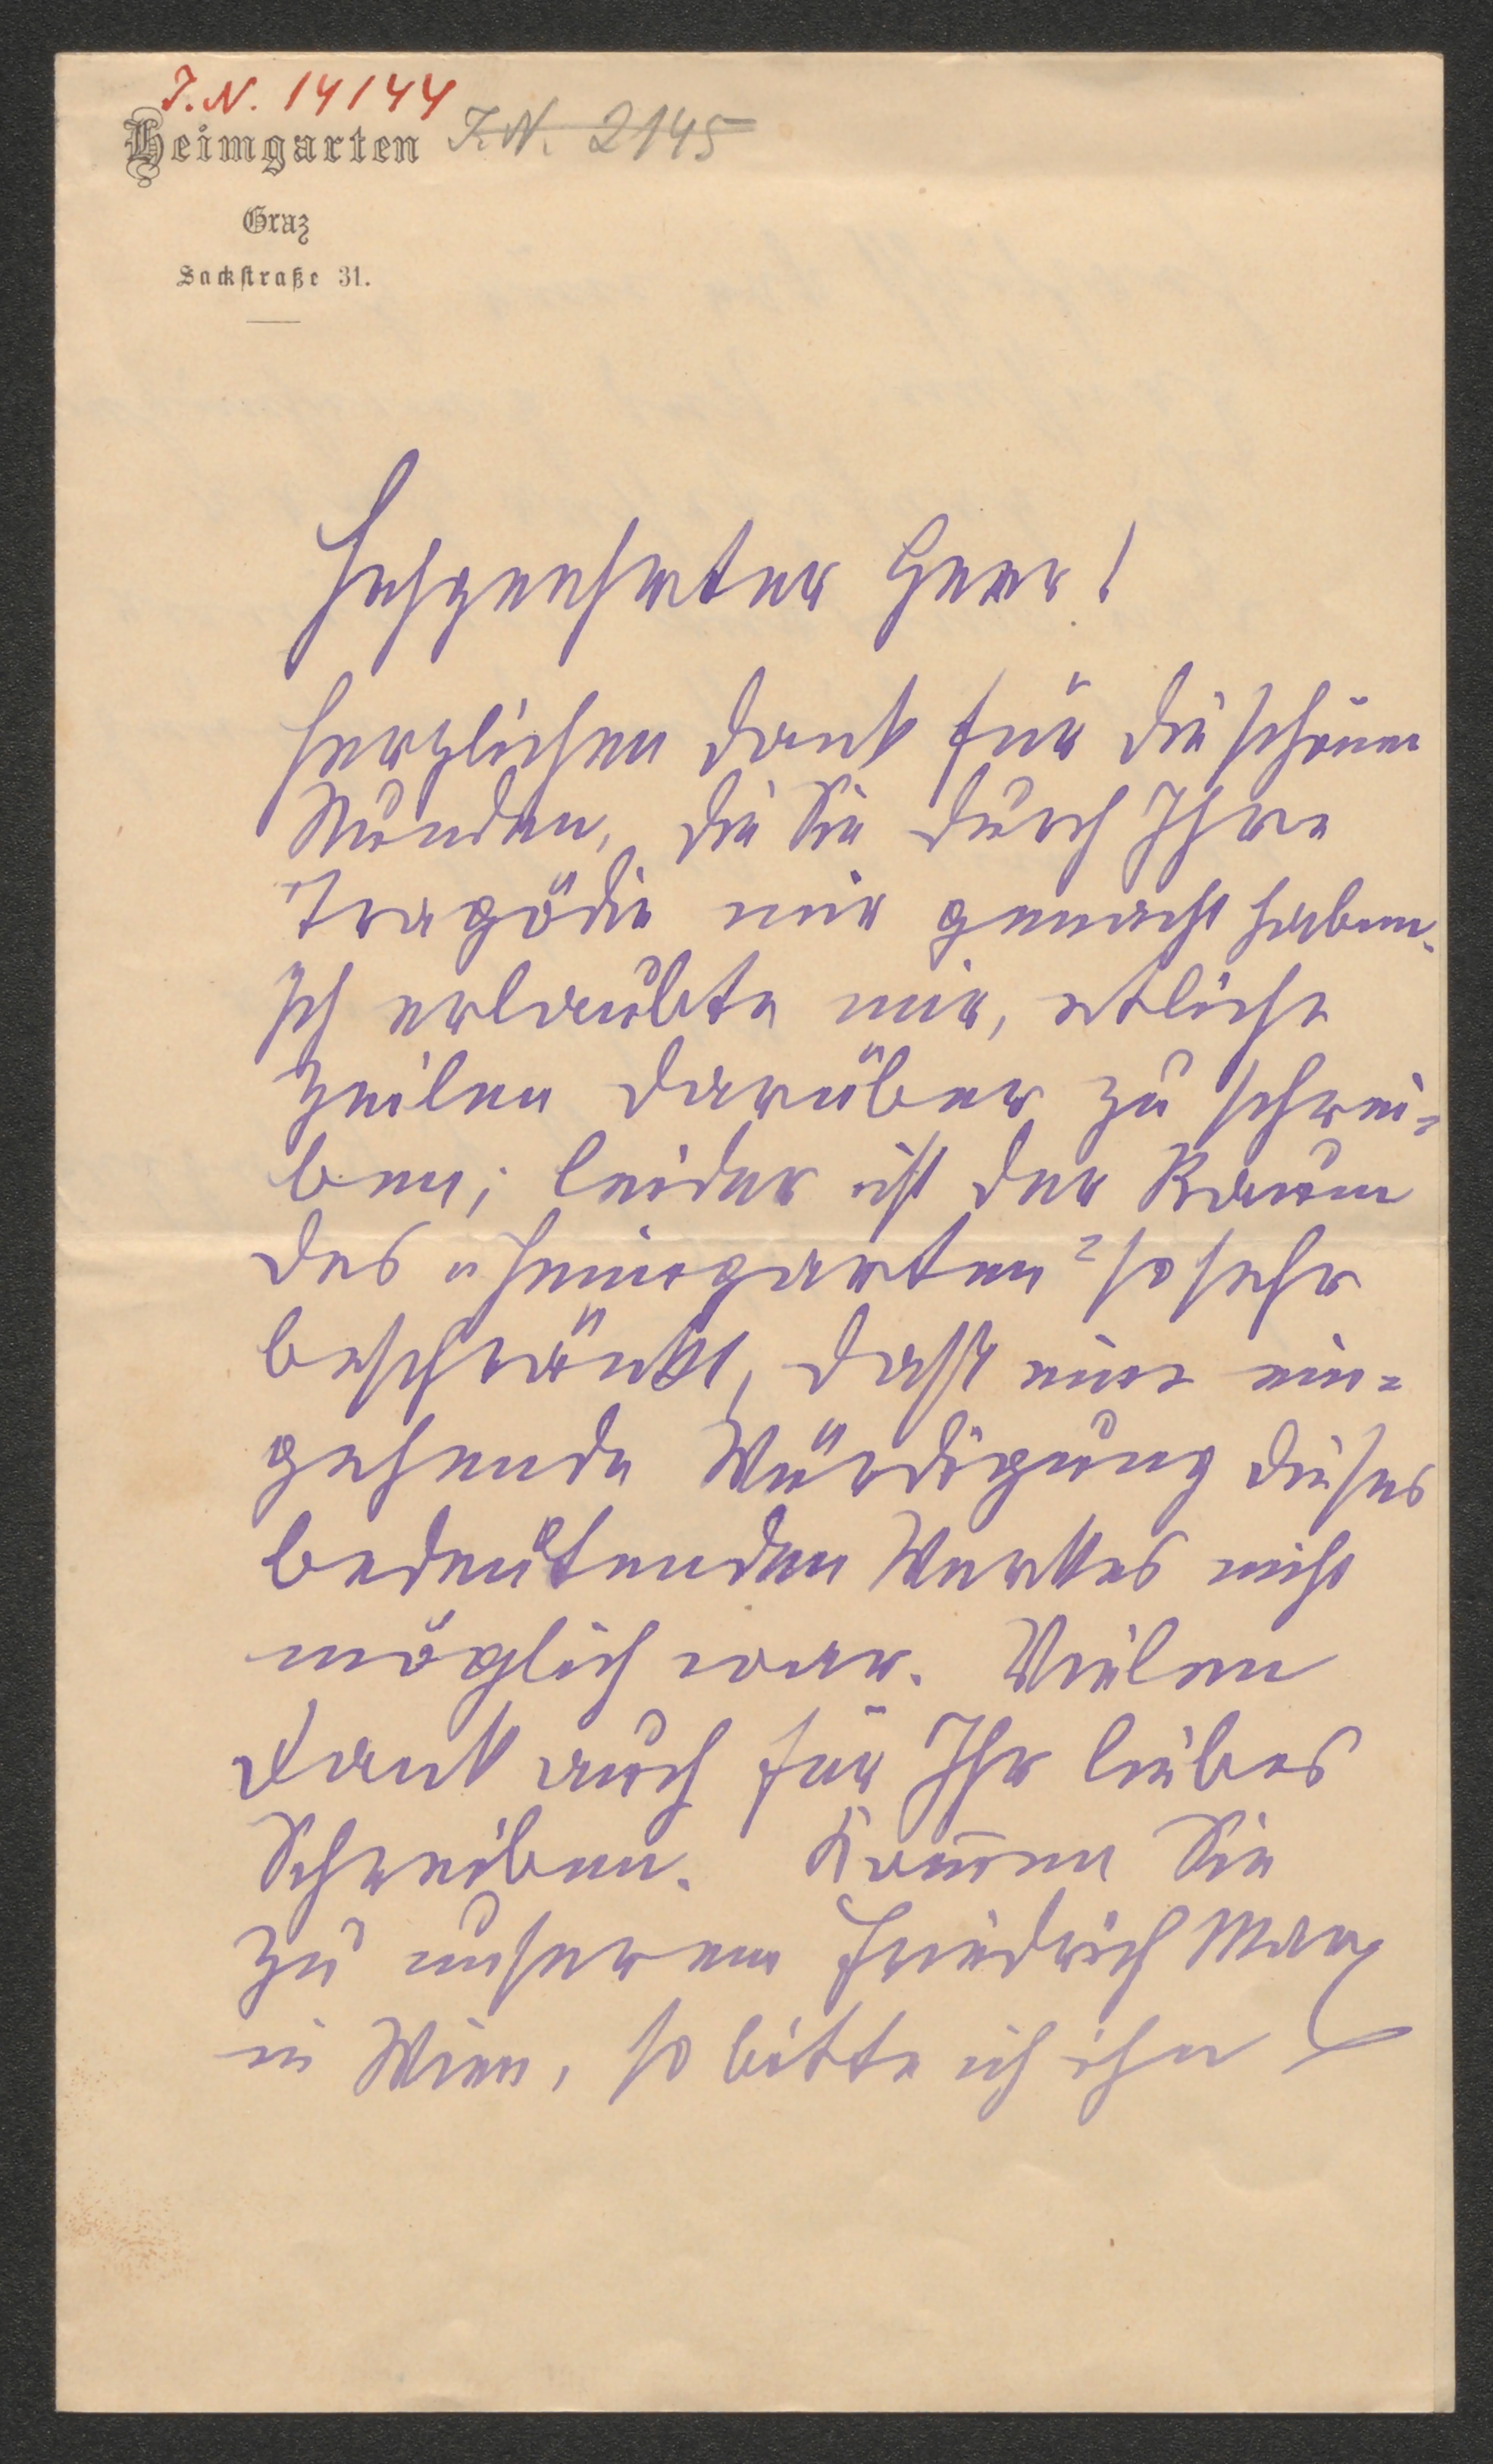 I.N. 14144
Heimgarten I.N. 2145
Graz
Sackstraße 31.
Hochgeehrter Herr!
Herzlichen Dank für die schönen
Stunden, die Sie durch Ihre
Tragödie mir gemacht haben.
Ich erlaubte mir, etliche
Zeilen darüber zu schrei=
ben; leider ist der Raum
des „Heimgarten" so sehr
beschränkt, dass eine ein=
gehende Würdigung dieses
bedeutenden Werkes nicht
möglich war. Vielen
Dank auch für Ihr liebes
Schreiben. Kom̄en Sie
zu unserem Friedrich Marx
in Wien, so bitte ich ihn